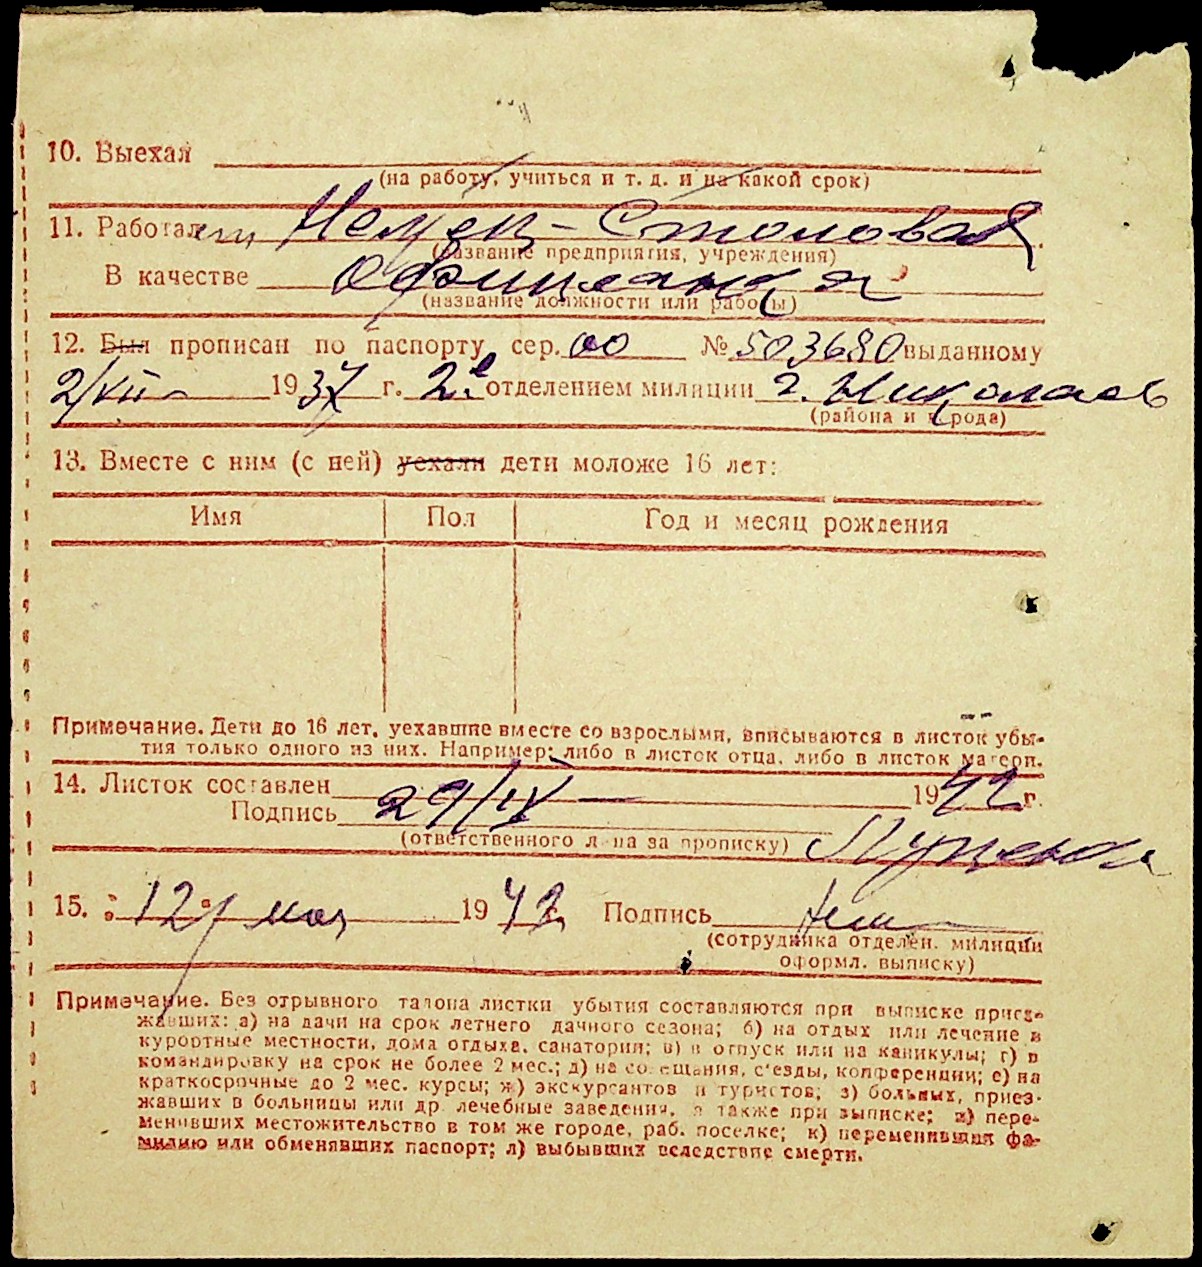 10. Выехал
(на работу, учиться и т. д. и на какой срок)
11. Работал Немец-Столовая
(название предприятия, учреждения)
В качестве Официантка
(название должности или работы)
12. Был прописан по паспорту сер. 00 № 503680 выданному
2/VII- 1937 г. 2е отделением милиции г. Николаев
(района и города)
13. Вместе с ним (с ней) уехали дети моложе 16 лет:
Имя Пол Год и месяц рождения
Примечание. Дети до 16 лет, уехавшие вместе со взрослыми, вписываются в листок убы-
тия только одного из них. Например: либо в листок отца, либо в листок матери.
14. Листок составлен 29/IV — 1942 г.
Подпись
(ответственного лица за прописку)
15. 12 мая 1942 Подпись
(сотрудника отделен. милиции
оформл. выписку)
Примечание. Без отрывного талона листки убытия составляются при выписке приез-
жавших: а) на дачи на срок летнего дачного сезона; б) на отдых или лечение в
курортные местности, дома отдыха, санатории; в) в отпуск или на каникулы; г) в
командировку на срок не более 2 мес.; д) на совещания, с'езды, конференции; е) на
краткосрочные до 2 мес. курсы; ж) экскурсантов и туристов; з) больных, приез-
жавших в больницы или др. лечебные заведения, а также при выписке; и) пере-
менивших местожительство в том же городе, раб. поселке; к) переменивших фа-
милию или обменявших паспорт; л) выбывших вследствие смерти.